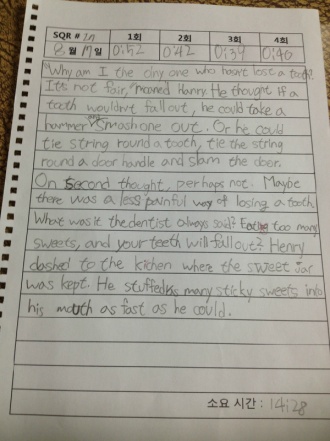 SQR # 1n 1회 2회 3회 4회
8월 17일 0:52 0:42 0:39 0:40
"Why am I the olny one who hasn't lost a tooth?
It's not fair," moaned Hanry. He thought If a
tooth wouldn't fall out, he could take a
hammer and smash one out. Or he could
tie string round a tooth, tie the string
round a door handle and slam the door.
On second thought, perhaps not. Maybe
there was a less painful way of losing a tooth.
What was it the dentist always said? Eating too many
sweets, and your teeth will fall out? Henry
dashed to the kichen where the sweet jar
was kept. He stuffed as many sticky sweets into
his mouth as fast as he could.
소요 시간 : 14:28